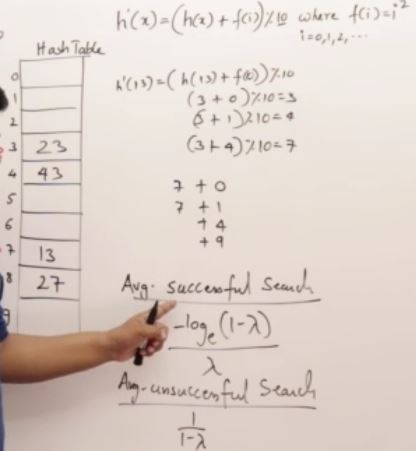 h'(x)=(h(x)+f(i))%10 where f(i)=i²
i=0,1,2,...
Hash Table
h'(13)=(h(13)+f(0))%10
(3+0)%10=3
(3+1)%10=4
(3+4)%10=7
0
1
2
3 23
4 43
5
6
7 13
8 27
9
7 +0
7 +1
+4
+9
Avg. successful Search
-logₑ(1-λ)
λ
Avg. unsuccessful Search
1
1-λ